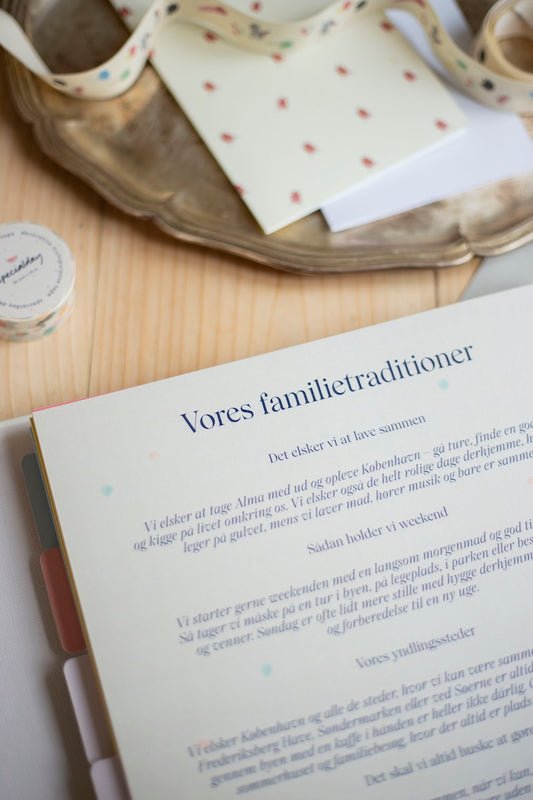 specialday
Vores familietraditioner
Det elsker vi at lave sammen
Vi elsker at tage Alma med ud og opleve København – gå ture, finde en god
og kigge på livet omkring os. Vi elsker også de helt rolige dage derhjemme, h
leger på gulvet, mens vi laver mad, hører musik og bare er samme
Sådan holder vi weekend
Vi starter gerne weekenden med en langsom morgenmad og god ti
Så tager vi måske på en tur i byen, på legeplads, i parken eller bes
og venner. Søndag er ofte lidt mere stille med hygge derhjemm
og forberedelse til en ny uge.
Vores yndlingssteder
Vi elsker København og alle de steder, hvor vi kan være samme
Frederiksberg Have, Søndermarken eller ved Søerne er altid
gennem byen med en kaffe i hånden er heller ikke dårlig.
sommerhuset og familiebesøg, hvor der altid er plads
Det skal vi altid huske at gøre
sammen, når vi kan,
uden